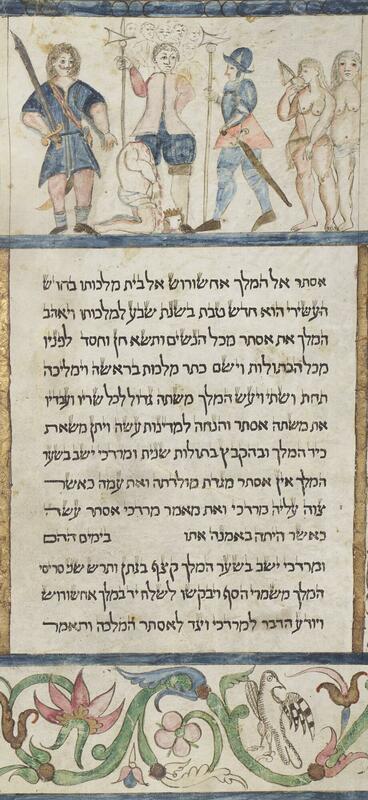 אסתר אל המלך אחשורוש אל בית מלכותו בחדש
העשירי הוא חדש טבת בשנת שבע למלכותו ויאהב
המלך את אסתר מכל הנשים ותשא חן וחסד לפניו
מכל הבתולות וישם כתר מלכות בראשה וימליכה
תחת ושתי ויעש המלך משתה גדול לכל שריו ועבדיו
את משתה אסתר והנחה למדינות עשה ויתן משאת
כיד המלך ובהקבץ בתולות שנית ומרדכי ישב בשער
המלך אין אסתר מגדת מולדתה ואת עמה כאשר
צוה עליה מרדכי ואת מאמר מרדכי אסתר עשה
כאשר היתה באמנה אתו בימים ההם
ומרדכי ישב בשער המלך קצף בגתן ותרש שני סריסי
המלך משמרי הסף ויבקשו לשלח יד במלך אחשורוש
ויודע הדבר למרדכי ויגד לאסתר המלכה ותאמר